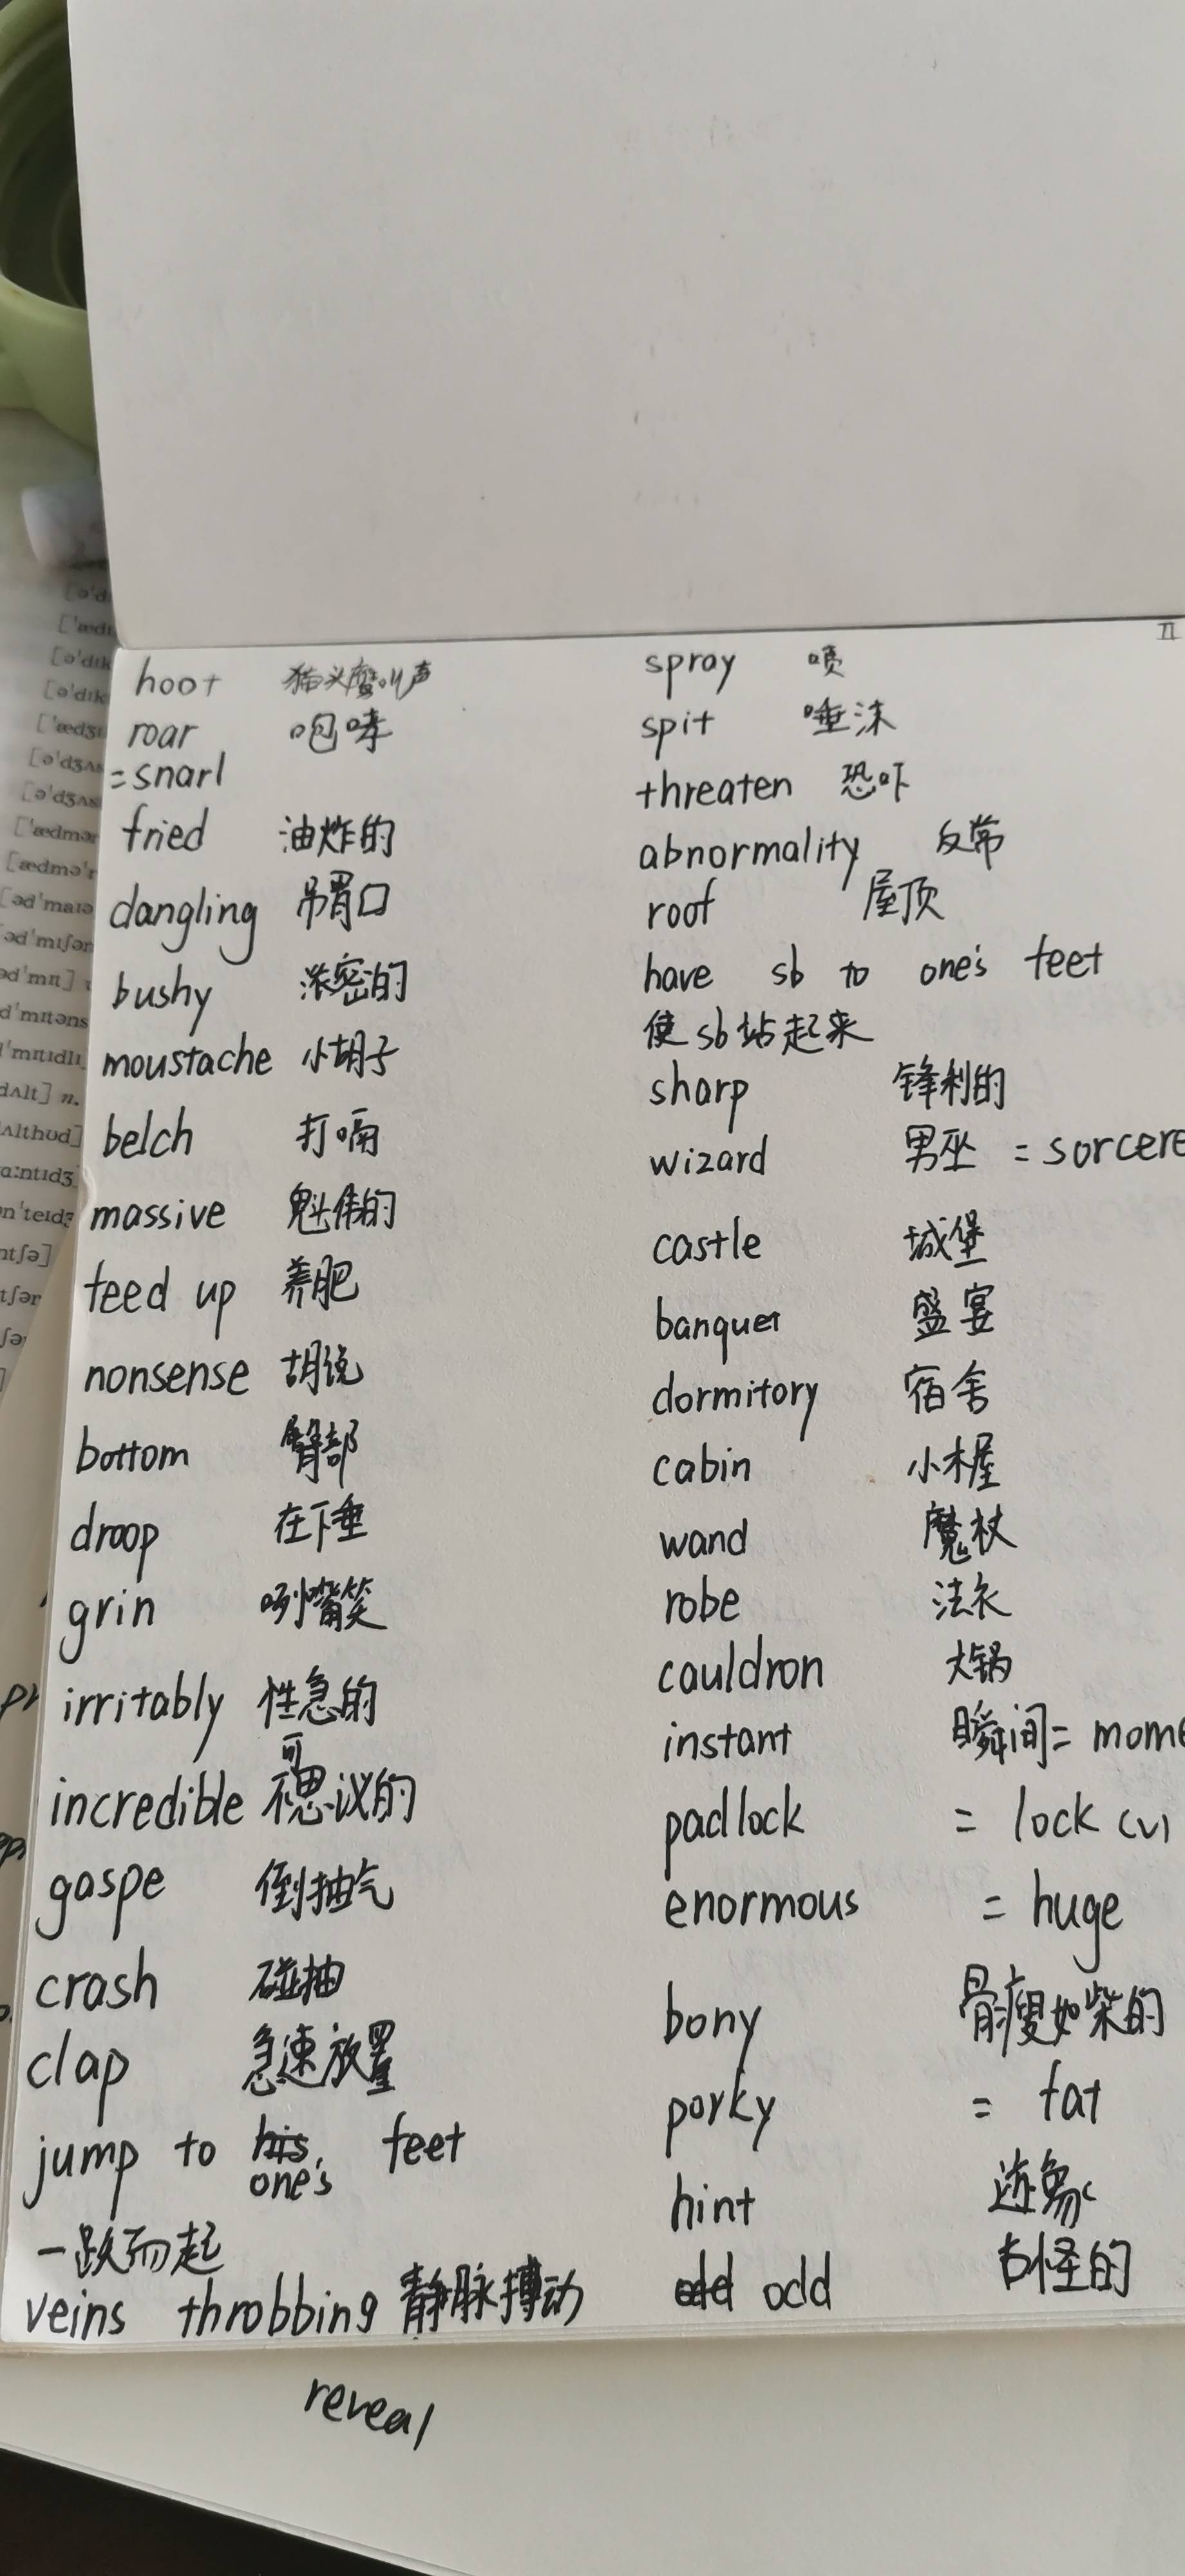 [ə'd
['ædı
[ə'dɪk
[ə'dɪk
['ædʒɪ
[ə'dʒʌs
[ə'dʒʌs
['ædmər
[ædmə'r
[əd'maɪə
əd'mɪʃər
əd'mɪt]
d'mɪtəns
'mɪtɪdlɪ
dʌlt] n.
ʌlthʊd]
ɑ:ntɪdʒ
n'teɪdʒ
ntʃə]
tʃər
ʃə
hoot 猫头鹰叫声
roar 咆哮
=snarl
fried 油炸的
dangling 吊胃口
bushy 浓密的
moustache 小胡子
belch 打嗝
massive 魁伟的
feed up 养肥
nonsense 胡说
bottom 臀部
droop 在下垂
grin 咧嘴笑
irritably 性急的
incredible 不可思议的
gaspe 倒抽气
crash 碰抽
clap 急速放置
jump to his feet
one's
一跃而起
veins throbbing 静脉搏动
II
spray 喷
spit 唾沫
threaten 恐吓
abnormality 反常
roof 屋顶
have sb to one's feet
使sb站起来
sharp 锋利的
wizard 男巫 = sorcere
castle 城堡
banquet 盛宴
dormitory 宿舍
cabin 小木屋
wand 魔杖
robe 法衣
cauldron 大锅
instant 瞬间= mome
padlock = lock (v)
enormous = huge
bony 骨瘦如柴的
porky = fat
hint 迹象
odd 古怪的
reveal